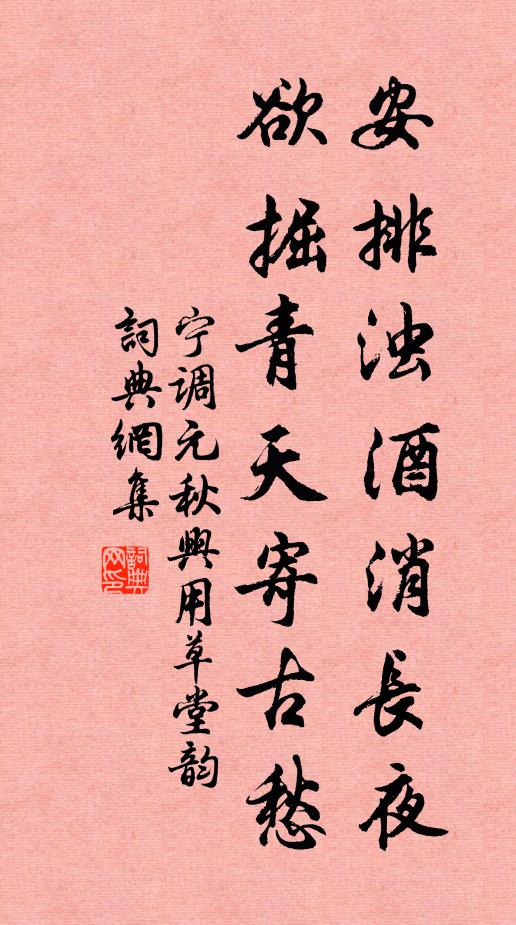 安排浊酒消長夜
欲掘青天寄古愁
宁调元秋興用草堂韵
詞典網集
詞典网印